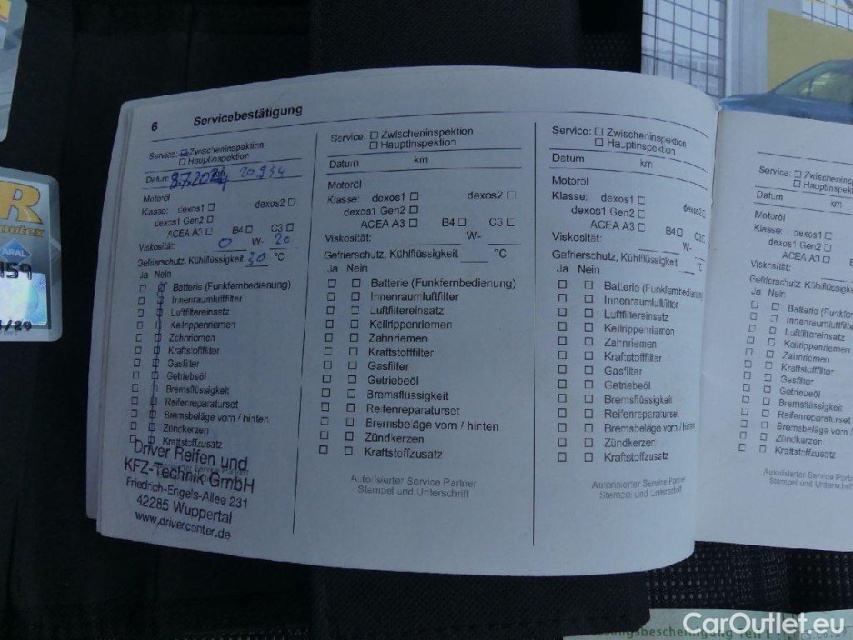 6 Servicebestätigung
Service: Zwischeninspektion
Hauptinspektion
Datum 3.7.2024 20.934
Motoröl
Klasse: dexos1 dexos2
dexos1 Gen2
ACEA A3 B4 C3
Viskosität: 0 W- 20
Gefrierschutz, Kühlflüssigkeit 30 °C
Ja Nein
Batterie (Funkfernbedienung)
Innenraumluftfilter
Luftfiltereinsatz
Keilrippenriemen
Zahnriemen
Kraftstofffilter
Gasfilter
Getriebeöl
Bremsflüssigkeit
Reifenreparaturset
Bremsbeläge vorn / hinten
Zündkerzen
Kraftstoffzusatz
Driver Reifen und
KFZ-Technik GmbH
Friedrich-Engels-Allee 231
42285 Wuppertal
www.drivercenter.de
Service: Zwischeninspektion
Hauptinspektion
Datum km
Motoröl
Klasse: dexos1 dexos2
dexos1 Gen2
ACEA A3 B4 C3
Viskosität: W-
Gefrierschutz, Kühlflüssigkeit °C
Ja Nein
Batterie (Funkfernbedienung)
Innenraumluftfilter
Luftfiltereinsatz
Keilrippenriemen
Zahnriemen
Kraftstofffilter
Gasfilter
Getriebeöl
Bremsflüssigkeit
Reifenreparaturset
Bremsbeläge vorn / hinten
Zündkerzen
Kraftstoffzusatz
Autorisierter Service Partner
Stempel und Unterschrift
Service: Zwischeninspektion
Hauptinspektion
Datum km
Motoröl
Klasse: dexos1 dexos2
dexos1 Gen2
ACEA A3 B4 C3
Viskosität: W-
Gefrierschutz, Kühlflüssigkeit °C
Ja Nein
Batterie (Funkfernbedienung
Innenraumluftfilter
Luftfiltereinsatz
Keilrippenriemen
Zahnriemen
Kraftstofffilter
Gasfilter
Getriebeöl
Bremsflüssigkeit
Reifenreparaturse
Bremsbeläge vorn / hin
Zündkerzen
Kraftstoffzusatz
Autorisierter Service Partn
Stempel und Unterschrift
Service: Zwischenins
Hauptinspek
Datum
Motoröl
Klasse: dexos1
dexos1 Gen2
ACEA A3
Viskosität:
Gefrierschutz, Kühlflüssigke
Ja Nein
Batterie (Funkfer
Innenraumluftfilte
Luftfiltereinsatz
Keilrippenriemen
Zahnriemen
Kraftstofffilter
Gasfilter
Getriebeöl
Bremsflüssigkeit
Reifenreparaturs
Bremsbeläge vorn
Zündkerzen
Kraftstoffzusatz
Autorisierter Service Par
Stempel und Untersch
R
ARAL
159
/29
CarOutlet.eu